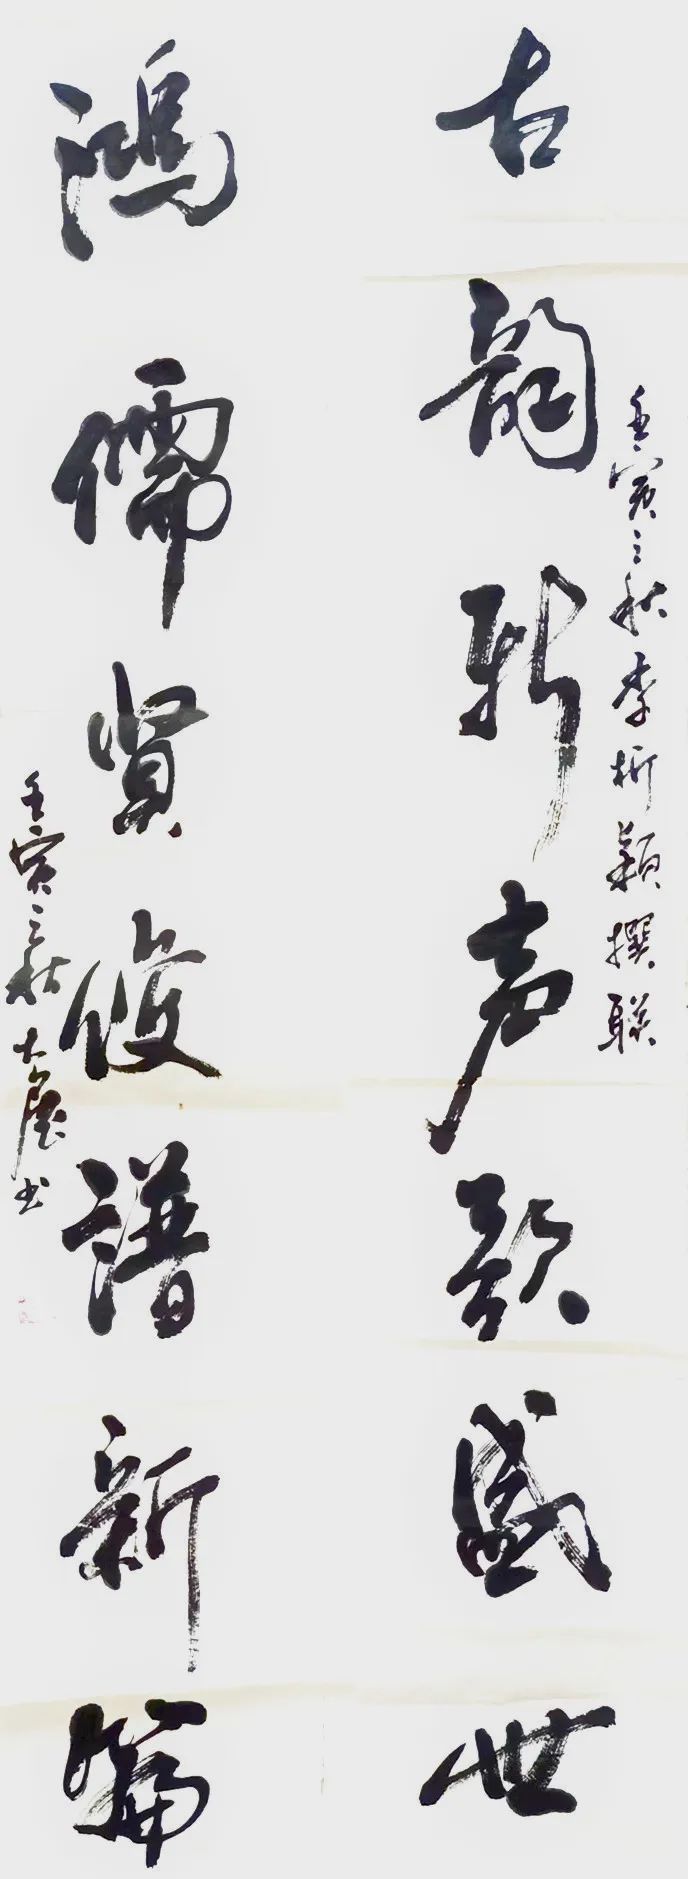 壬寅之秋李析颖撰联
古韵新声歌盛世
鸿儒贤俊谱新篇
壬寅之秋大屋书